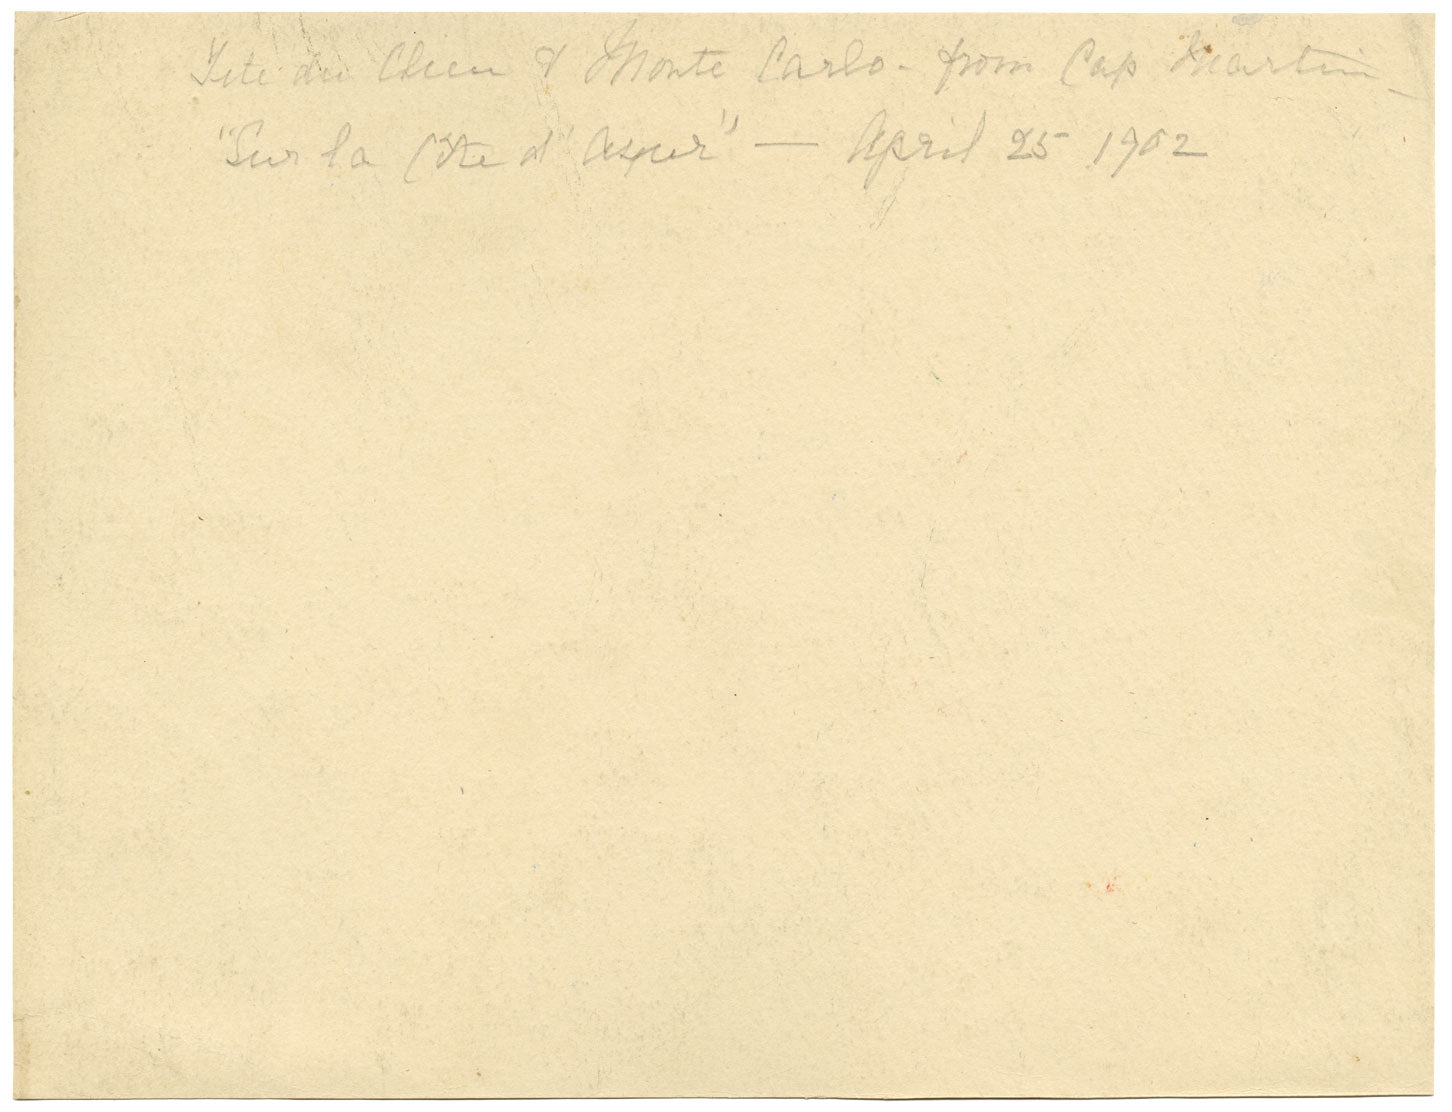 Tete du Chien & Monte Carlo - from Cap Martin -
"Sur la Côte d'Azur" — April 25 1902